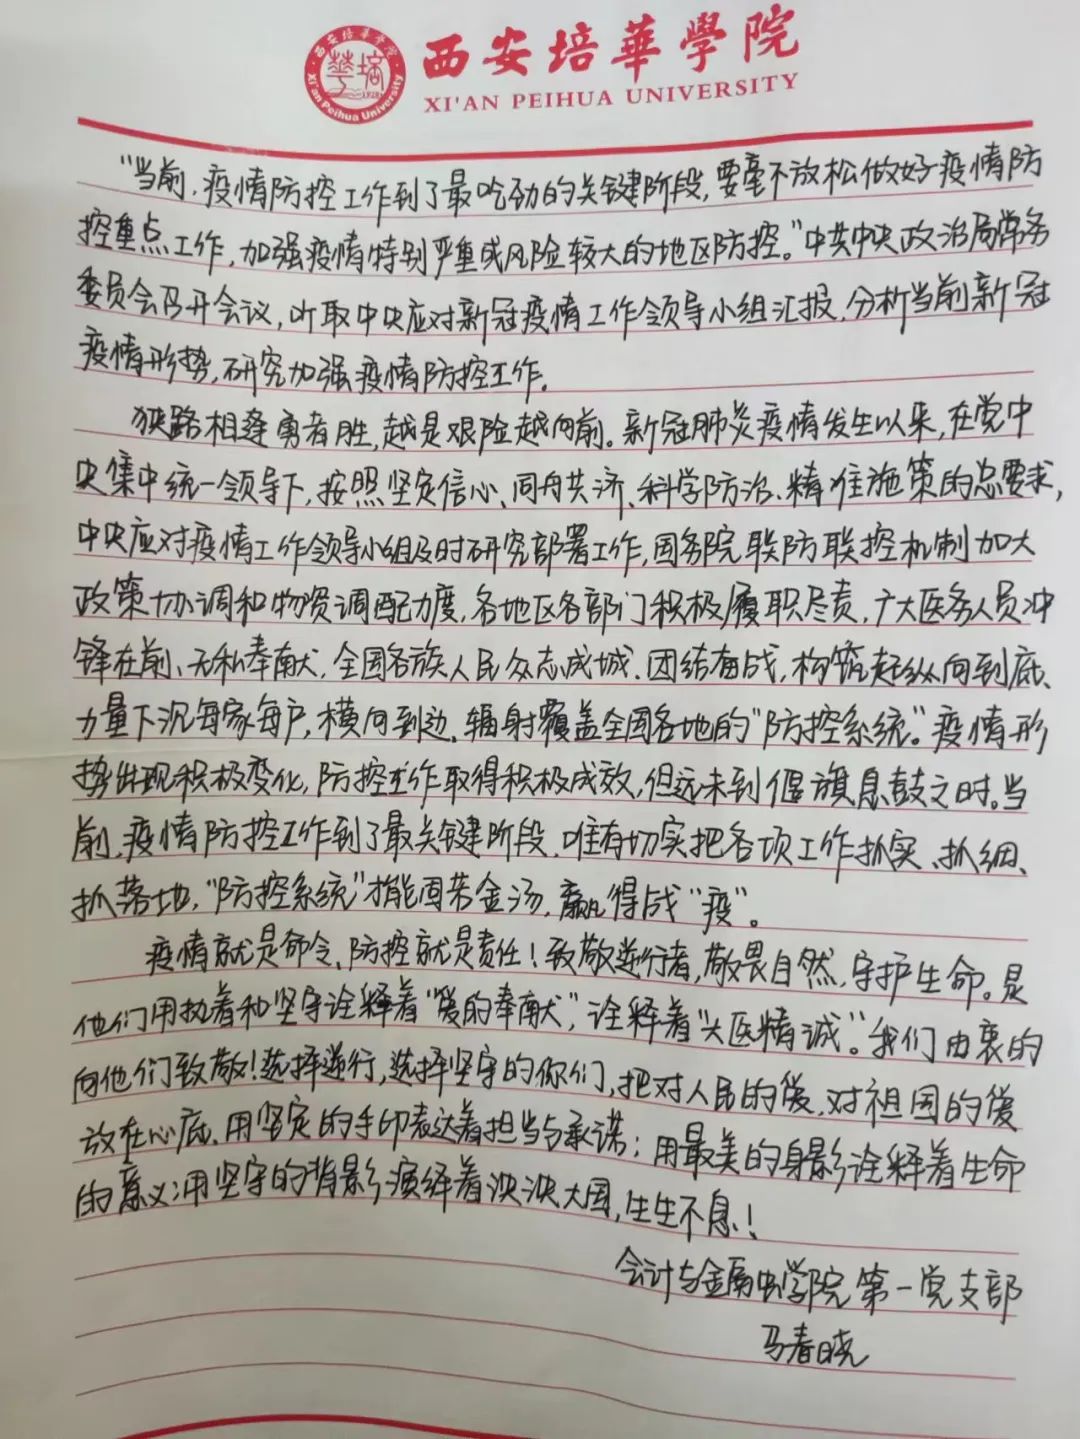 西安培華學院
XI'AN PEIHUA UNIVERSITY
西安培華学院
Xi'an Peihua University
"当前，疫情防控工作到了最吃劲的关键阶段，要毫不放松做好疫情防
控重点工作，加强疫情特别严重或风险较大的地区防控。"中共中央政治局常务
委员会召开会议，听取中央应对新冠疫情工作领导小组汇报，分析当前新冠
疫情形势，研究加强疫情防控工作。
狭路相逢勇者胜，越是艰险越向前。新冠肺炎疫情发生以来，在党中
央集中统一领导下，按照坚定信心、同舟共济、科学防治、精准施策的总要求，
中央应对疫情工作领导小组及时研究部署工作，国务院联防联控机制加大
政策协调和物资调配力度，各地区各部门积极履职尽责，广大医务人员冲
锋在前、无私奉献，全国各族人民众志成城、团结奋战，构筑起纵向到底、
力量下沉每家每户，横向到边、辐射覆盖全国各地的"防控系统"。疫情形
势出现积极变化，防控工作取得积极成效，但远未到偃旗息鼓之时。当
前，疫情防控工作到了最关键阶段，唯有切实把各项工作抓实、抓细、
抓落地，"防控系统"才能固若金汤，赢得战"疫"。
疫情就是命令、防控就是责任！致敬逆行者，敬畏自然，守护生命。是
他们用执着和坚守诠释着"爱的奉献"，诠释着"大医精诚"。我们由衷的
向他们致敬！选择逆行，选择坚守的你们，把对人民的爱、对祖国的爱
放在心底、用坚定的手印表达着担当与承诺；用最美的身影诠释着生命
的意义；用坚守的背影演绎着泱泱大国，生生不息！
会计与金属学院第一党支部
马春晓